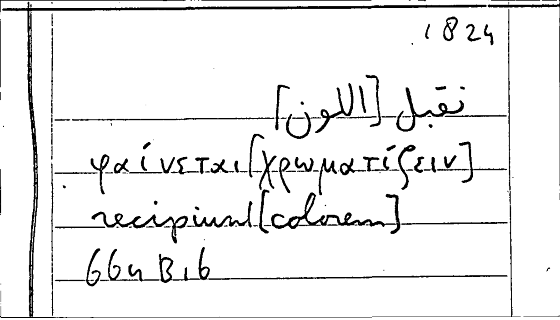 1824
نقبل [اللون]
φαίνεται [χρωματίζειν]
recipiunt [colorem]
664 B, 6